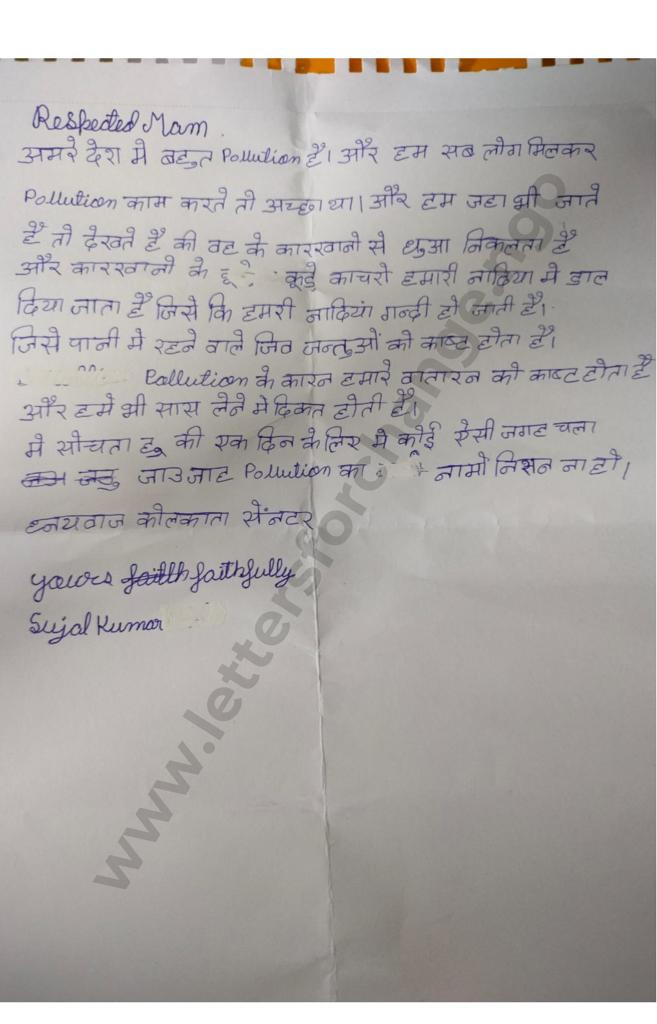 Respected Mam
अमरे देश मे बहुत Pollution है। और हम सब लोग मिलकर
Pollution काम करते तो अच्छा था। और हम जहा भी जाते
है तो देखते है की वह के कारखानो से धुआ निकलता है
और कारखानो के कूड़े काचरो हमारी नादिया मे डाल
दिया जाता है जिसे कि हमरी नादियां गन्दी हो जाती है।
जिसे पानी मे रहने वाले जिव जन्तुओं को काष्ट होता है।
Pollution के कारन हमारे वातारन को काष्ट होता है
और हमे भी सास लेने मे दिकत होती है।
मे सोचता हू की एक दिन के लिर मे कोई ऐसी जगह चला
जाउ जाह Pollution का नामो निशन ना हो।
ध्नयवाज कोलकाता सेंनटर
yours faithfully
Sujal Kumar
www.lettersforchange.ngo